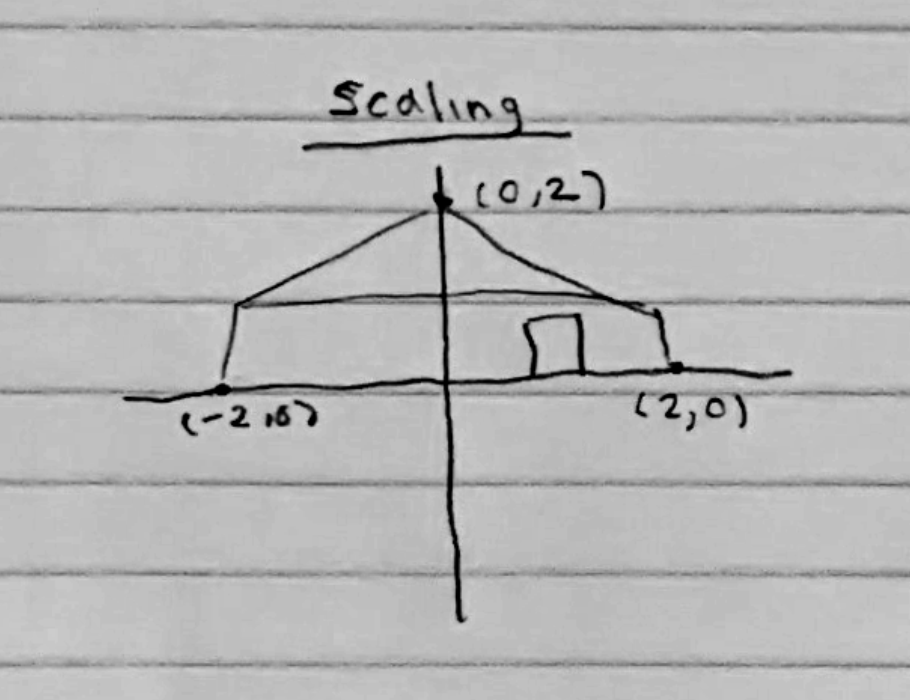 Scaling
(0,2)
(-2,0)
(2,0)